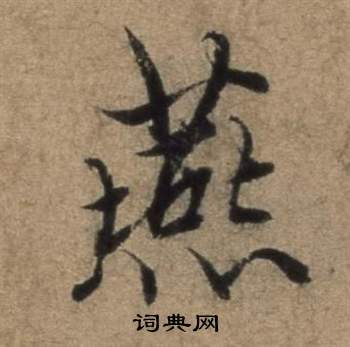 燕
词典网